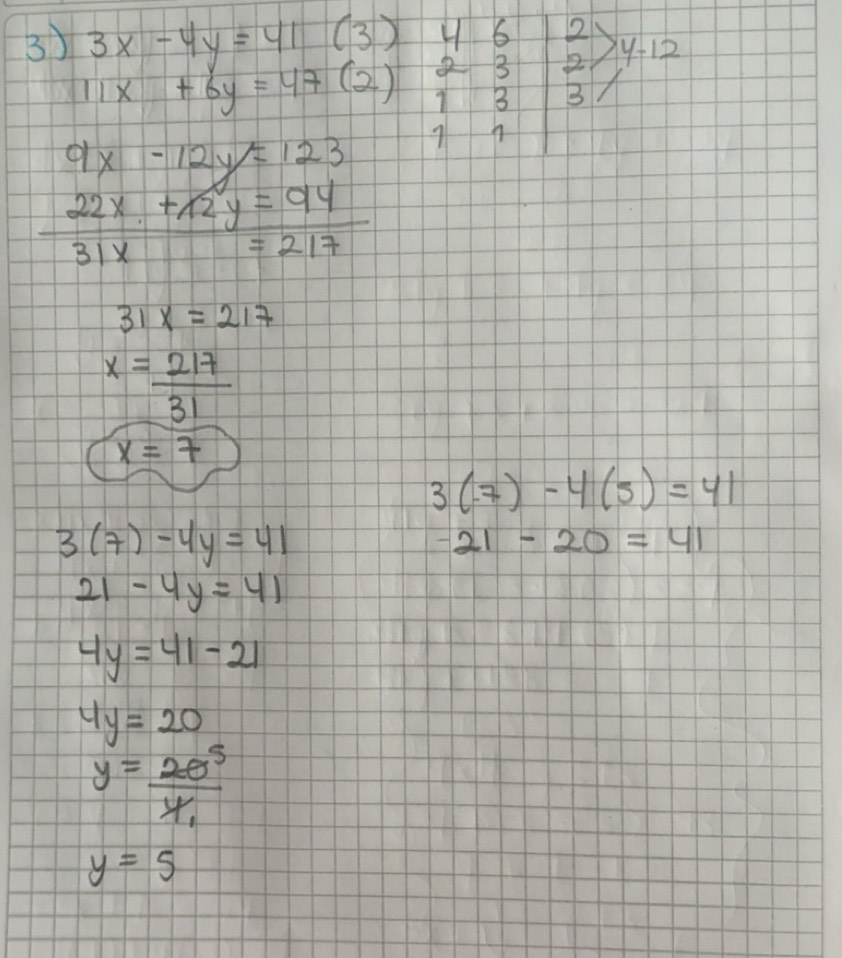 3) 3x - 4y = 41 (3)
11x + 6y = 47 (2)
4 6 | 2
2 3 | 2 > 4-12
1 3 | 3
1 1
9x - 12y = 123
22x + 12y = 94
31x = 217
31x = 217
x = 217
31
x = 7
3(7) - 4y = 41
21 - 4y = 41
4y = 41 - 21
4y = 20
y = 20 5
4 1
y = 5
3(-7) - 4(5) = 41
-21 - 20 = 41